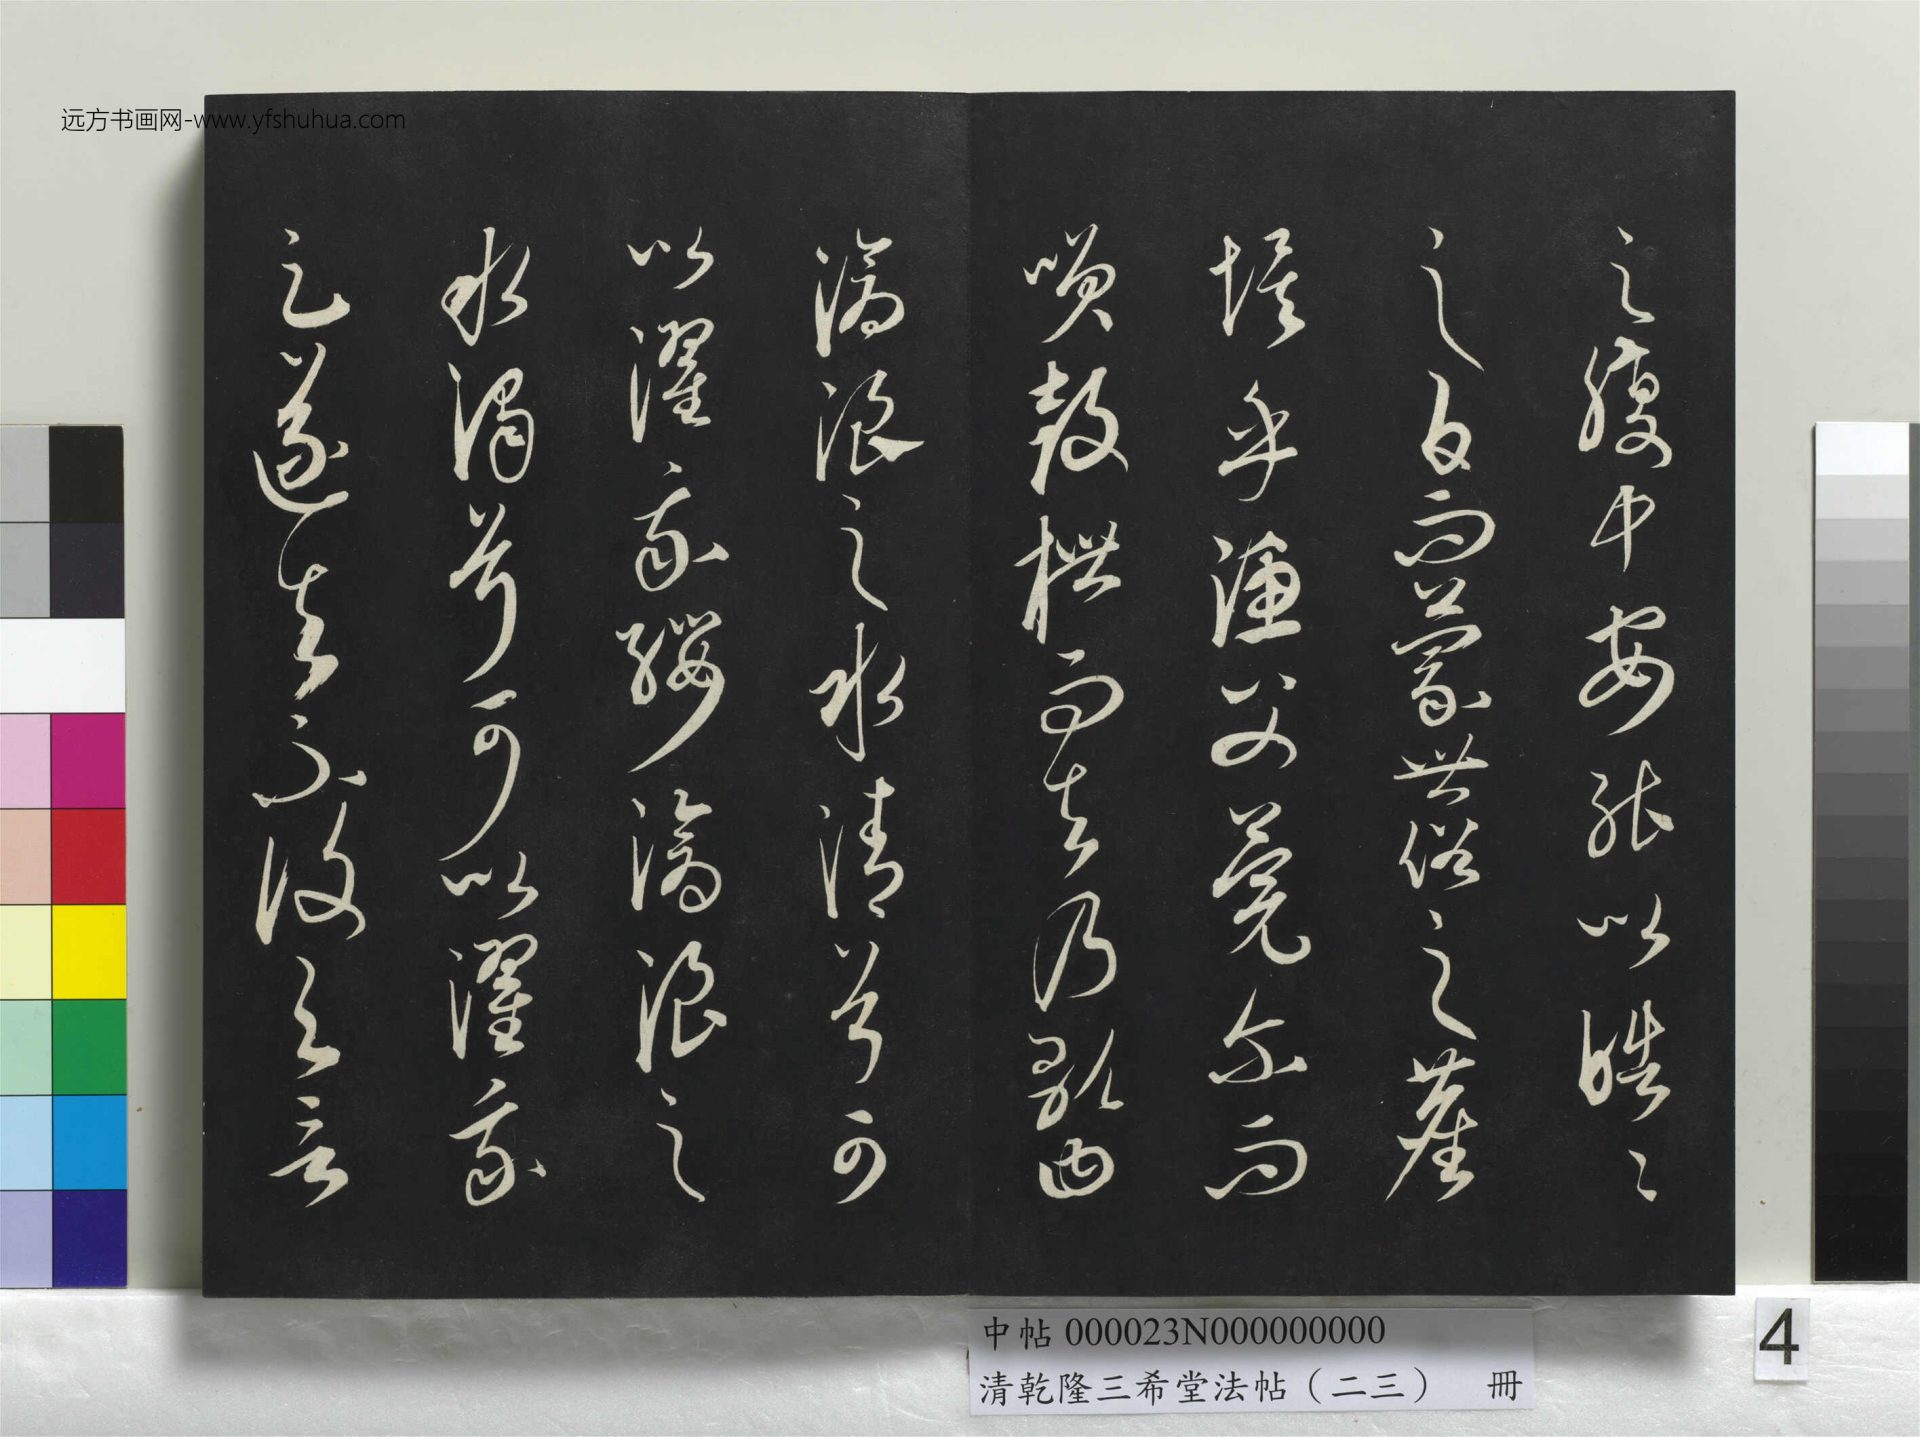 远方书画网-www.yfshuhua.com
之腹中安能以皓〻
之白而蒙世俗之塵
埃乎漁父莞尔而
咲鼓枻而去乃歌曰
滄浪之水清兮可
以濯我纓滄浪之
水濁兮可以濯我
足遂去不復与言
中帖 000023N000000000
清乾隆三希堂法帖（二三） 冊
4